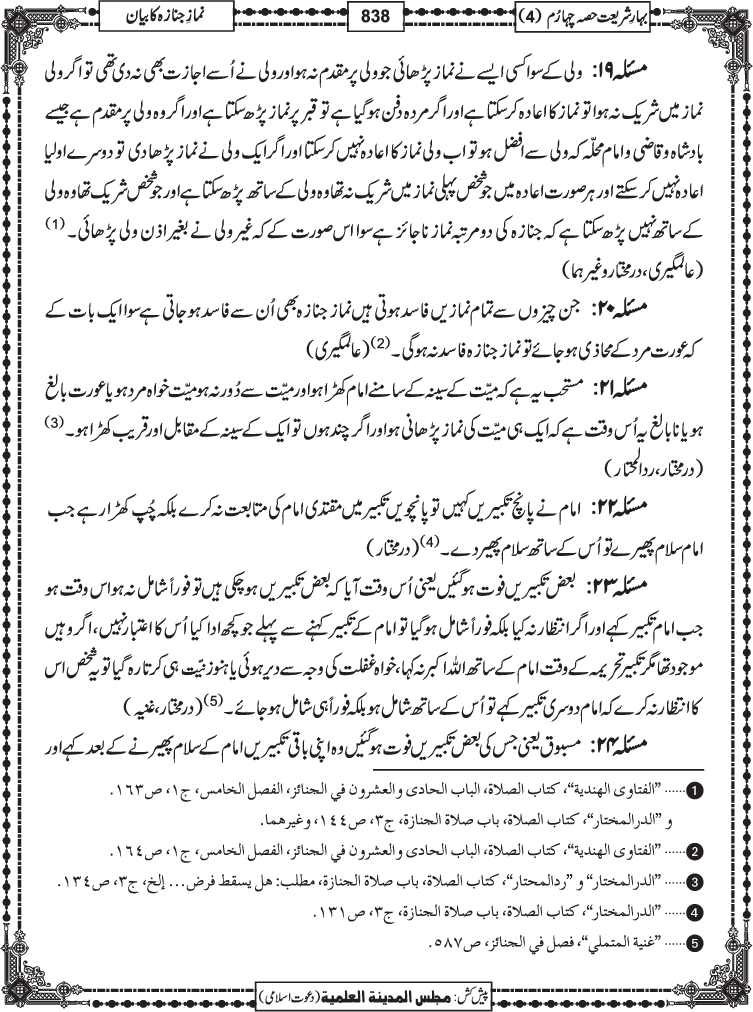 بہارِ شریعت حصہ چہارُم (4)
838
نمازِ جنازہ کا بیان
مسئلہ ۱۹: ولی کے سوا کسی ایسے نے نماز پڑھائی جو ولی پر مقدم نہ ہو اور ولی نے اُسے اجازت بھی نہ دی تھی تو اگر ولی
نماز میں شریک نہ ہوا تو نماز کا اعادہ کر سکتا ہے اور اگر مردہ دفن ہو گیا ہے تو قبر پر نماز پڑھ سکتا ہے اور اگر وہ ولی پر مقدم ہے جیسے
بادشاہ و قاضی و امام محلّہ کہ ولی سے افضل ہو تو اب ولی نماز کا اعادہ نہیں کر سکتا اور اگر ایک ولی نے نماز پڑھا دی تو دوسرے اولیا
اعادہ نہیں کر سکتے اور ہر صورت اعادہ میں جو شخص پہلی نماز میں شریک نہ تھا وہ ولی کے ساتھ پڑھ سکتا ہے اور جو شخص شریک تھا وہ ولی
کے ساتھ نہیں پڑھ سکتا ہے کہ جنازہ کی دو مرتبہ نماز ناجائز ہے سوا اس صورت کے کہ غیر ولی نے بغیر اذن ولی پڑھائی۔ (1)
(عالمگیری، درمختار وغیرہما)
مسئلہ ۲۰: جن چیزوں سے تمام نمازیں فاسد ہوتی ہیں نماز جنازہ بھی اُن سے فاسد ہو جاتی ہے سوا ایک بات کے
کہ عورت مرد کے محاذی ہو جائے تو نماز جنازہ فاسد نہ ہوگی۔ (2) (عالمگیری)
مسئلہ ۲۱: مستحب یہ ہے کہ میّت کے سینہ کے سامنے امام کھڑا ہو اور میّت سے دُور نہ ہو میّت خواہ مرد ہو یا عورت بالغ
ہو یا نابالغ یہ اُس وقت ہے کہ ایک ہی میّت کی نماز پڑھانی ہو اور اگر چند ہوں تو ایک کے سینہ کے مقابل اور قریب کھڑا ہو۔ (3)
(درمختار، ردالمحتار)
مسئلہ ۲۲: امام نے پانچ تکبیریں کہیں تو پانچویں تکبیر میں مقتدی امام کی متابعت نہ کرے بلکہ چُپ کھڑا رہے جب
امام سلام پھیرے تو اُس کے ساتھ سلام پھیر دے۔ (4) (درمختار)
مسئلہ ۲۳: بعض تکبیریں فوت ہو گئیں یعنی اُس وقت آیا کہ بعض تکبیریں ہو چکی ہیں تو فوراً شامل نہ ہو اس وقت ہو
جب امام تکبیر کہے اور اگر انتظار نہ کیا بلکہ فوراً شامل ہو گیا تو امام کے تکبیر کہنے سے پہلے جو کچھ ادا کیا اُس کا اعتبار نہیں، اگر وہیں
موجود تھا مگر تکبیر تحریمہ کے وقت امام کے ساتھ اللہ اکبر نہ کہا، خواہ غفلت کی وجہ سے دیر ہوئی یا ہنوز نیّت ہی کرتا رہ گیا تو یہ شخص اس
کا انتظار نہ کرے کہ امام دوسری تکبیر کہے تو اُس کے ساتھ شامل ہو بلکہ فوراً ہی شامل ہو جائے۔ (5) (درمختار، غنیہ)
مسئلہ ۲۴: مسبوق یعنی جس کی بعض تکبیریں فوت ہو گئیں وہ اپنی باقی تکبیریں امام کے سلام پھیرنے کے بعد کہے اور
1 ...... ”الفتاوى الهندية“، كتاب الصلاة، الباب الحادى والعشرون في الجنائز، الفصل الخامس، ج۱، ص۱۶۳.
و ”الدرالمختار“، كتاب الصلاة، باب صلاة الجنازة، ج۳، ص۱۴۴، وغيرهما.
2 ...... ”الفتاوى الهندية“، كتاب الصلاة، الباب الحادى والعشرون في الجنائز، الفصل الخامس، ج۱، ص۱۶۴.
3 ...... ”الدرالمختار“ و ”ردالمحتار“، كتاب الصلاة، باب صلاة الجنازة، مطلب: هل يسقط فرض... إلخ، ج۳، ص۱۳۴.
4 ...... ”الدرالمختار“، كتاب الصلاة، باب صلاة الجنازة، ج۳، ص۱۳۱.
5 ...... ”غنية المتملي“، فصل في الجنائز، ص۵۸۷.
پیش کش: مجلس المدينة العلمية (دعوتِ اسلامی)